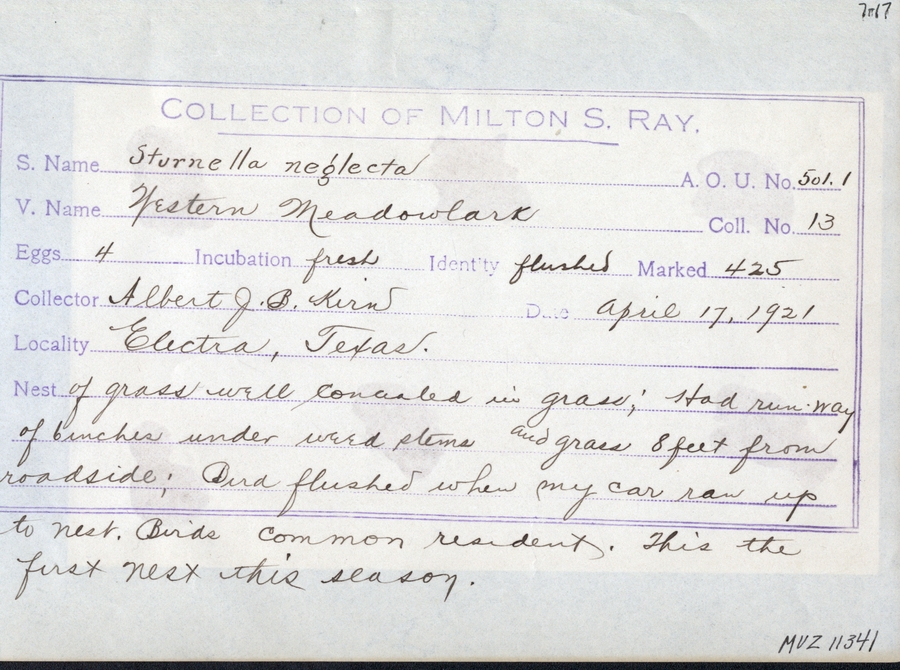 7717
COLLECTION OF MILTON S. RAY.
S. Name Sturnella neglecta A. O. U. No. 501.1
V. Name Western Meadowlark Coll. No. 13
Eggs 4 Incubation fresh Identity flushed Marked 425
Collector Albert J. B. Kirn Date April 17, 1921
Locality Electra, Texas.
Nest of grass well concealed in grass; Had run-way
of 6 inches under weed stems and grass 8 feet from
roadside; Bird flushed when my car ran up
to nest. Birds common resident. This the
first nest this season.
MVZ 11341